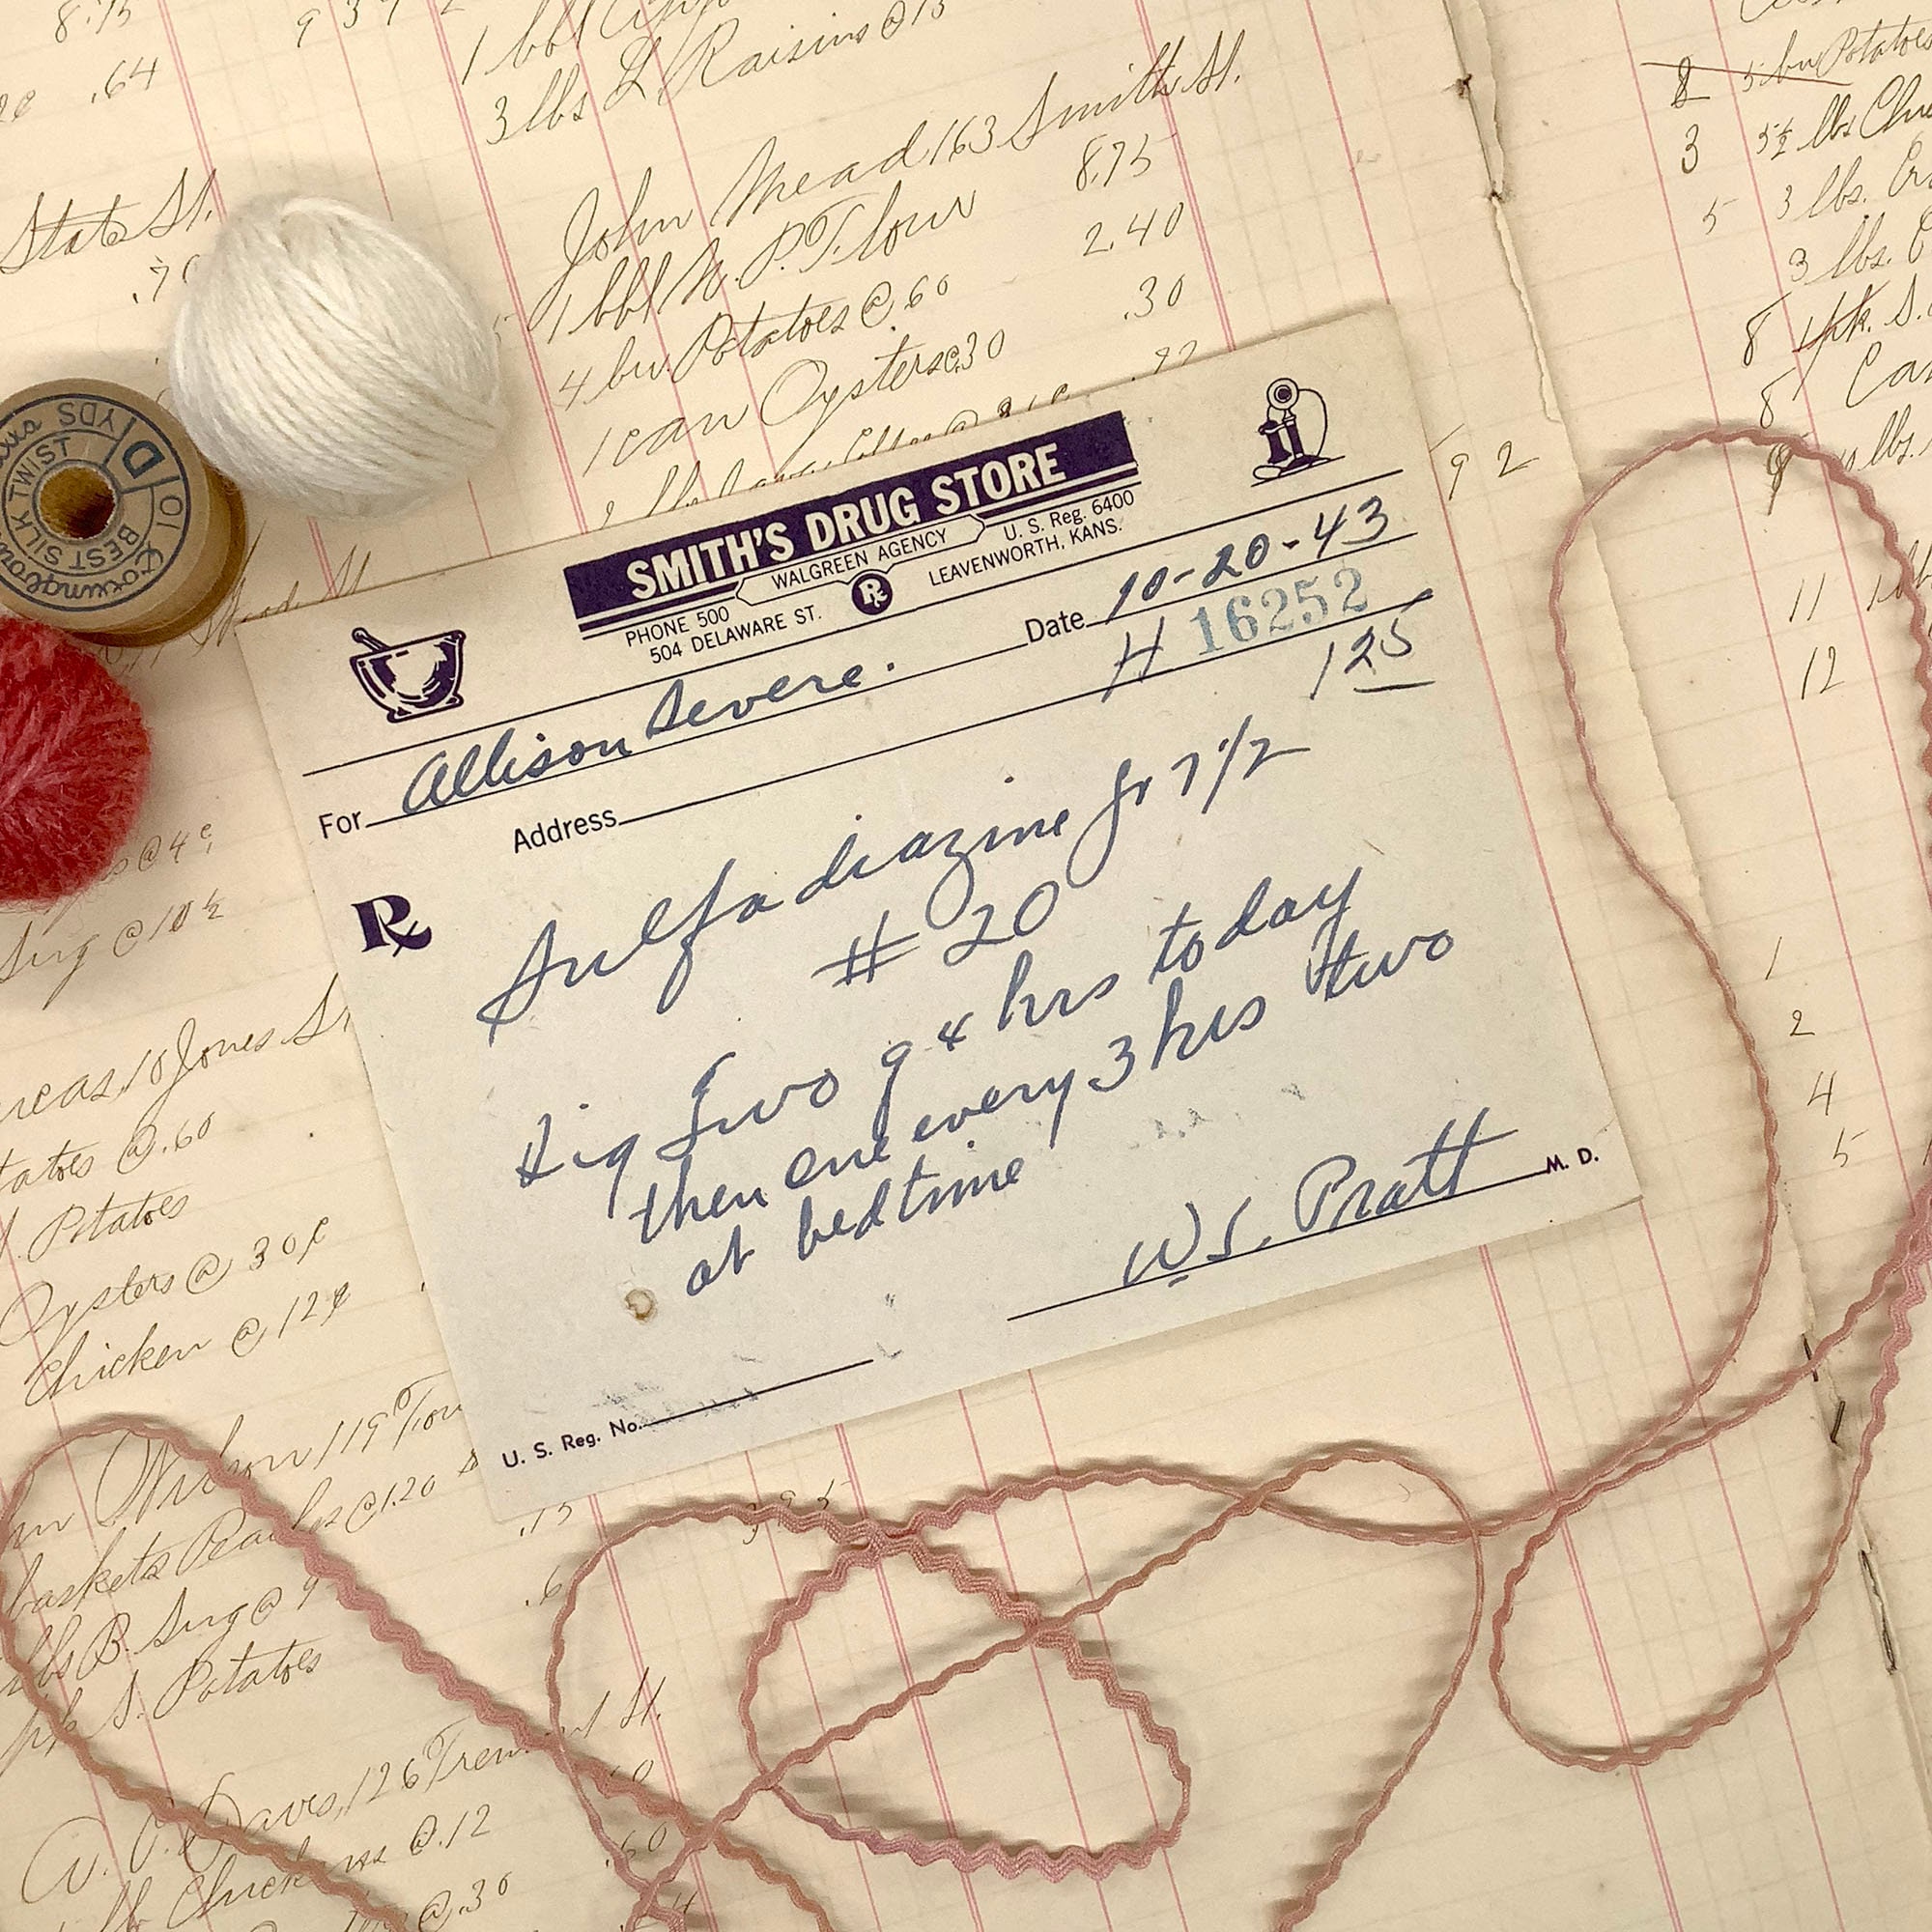 8.75
.64
3 lbs L Raisins @ 15
John Mead 163 Smith St.
1 bbl N. P. Flour 8.75
4 bu. Potatoes @ .60 2.40
1 can Oysters @ 30 .30
State St.
.70
92
8 5 bu Potatoes
3 5½ lbs
5 3 lbs.
3 lbs.
8
8
lbs.
11
12
1
2
4
5
YDS
D
BEST SILK TWIST
SMITH'S DRUG STORE
WALGREEN AGENCY
PHONE 500 Rx U. S. Reg. 6400
504 DELAWARE ST. LEAVENWORTH, KANS.
Date 10-20-43
H 16252
For Allison Severe.
125
Address
Rx
Sulfadiazine gr 7 1/2
# 20
Sig Two q 4 hrs today
then one every 3 hrs two
at bedtime
W S. Pratt M. D.
U. S. Reg. No.
@ 4c
Sug @ 10½
10 Jones St
@ .60
Potatoes
Oysters @ 30¢
Chicken @ 12¢
119
baskets @ 1.20
lbs B. Sug @ 9
pk S. Potatoes
.15
395
.6
Davis, 126 St.
@ .12
.60
@ .30